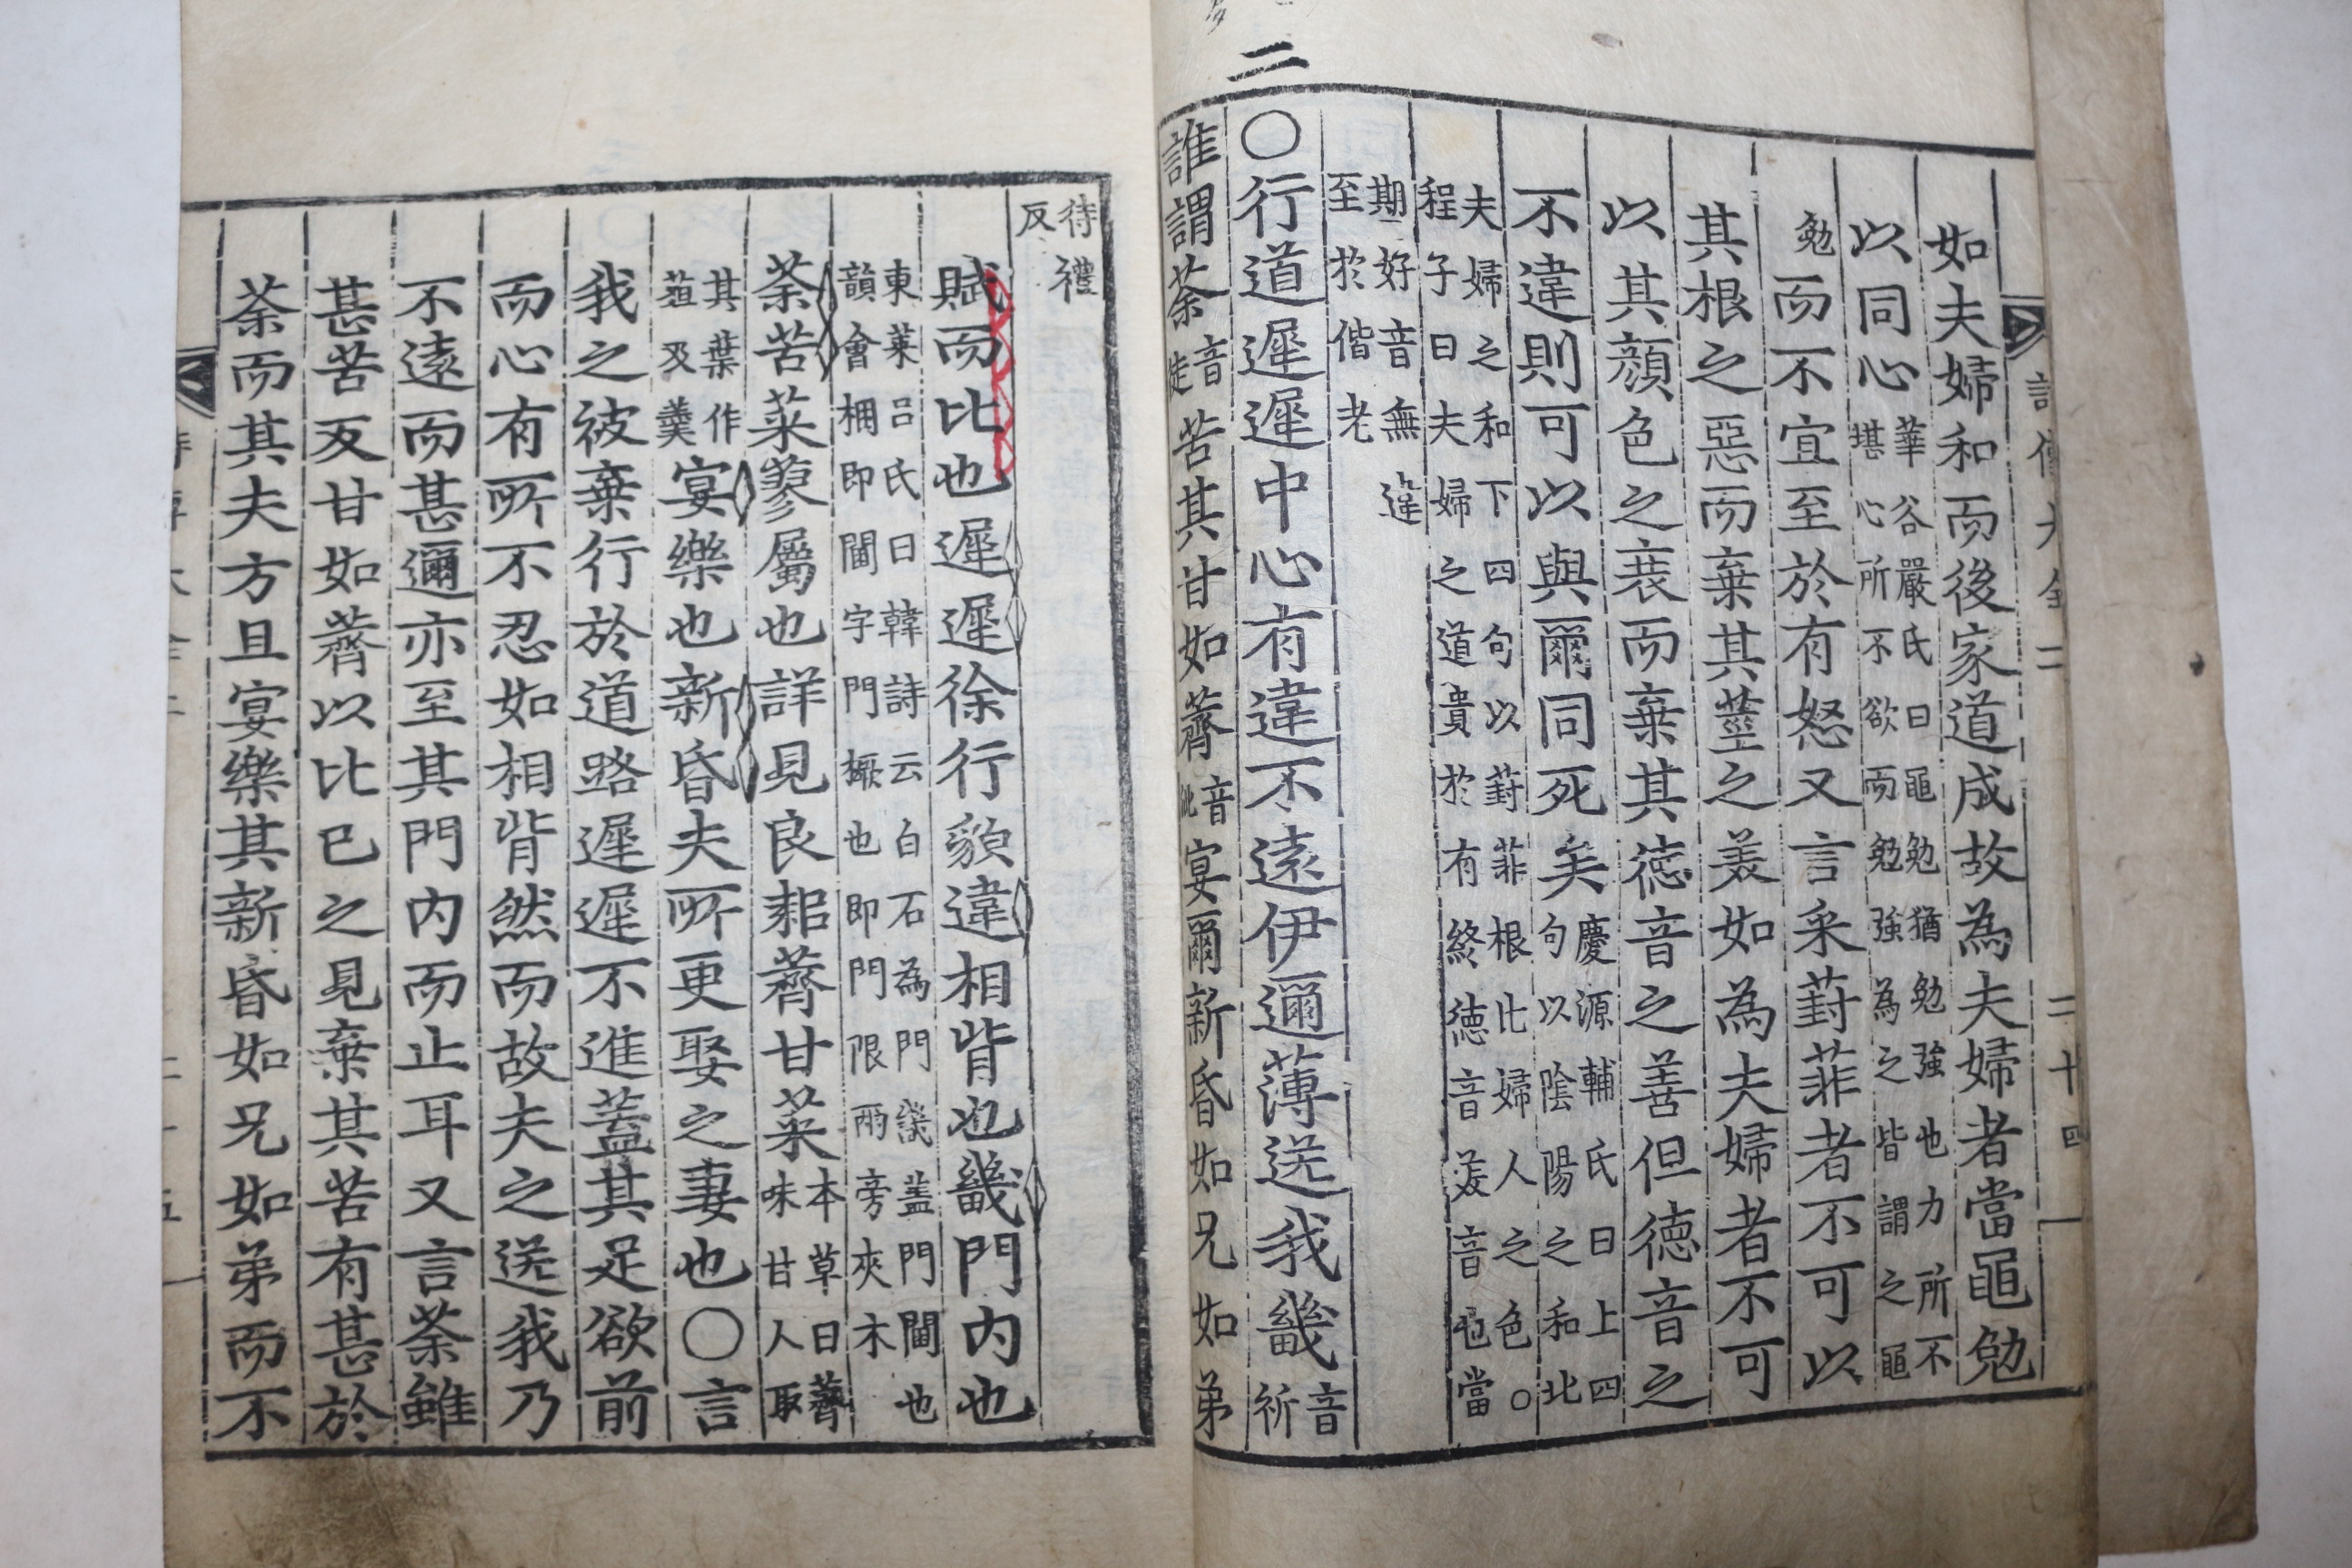 二
如夫婦和而後家道成故為夫婦者當黽勉
以同心
華谷嚴氏曰黽勉猶勉強也力所不
堪心所不欲而勉強為之皆謂之黽
勉
而不宜至於有怒又言采葑菲者不可以
其根之惡而棄其莖之美如為夫婦者不可
以其顏色之衰而棄其德音之善但德音之
不違則可以與爾同死矣
慶源輔氏曰上四
句以陰陽之和比
夫婦之和下四句以葑菲根比婦人之色○
程子曰夫婦之道貴於有終德音美音也當
期好音無違
至於偕老
○行道遲遲中心有違不遠伊邇薄送我畿音祈
誰謂荼音徒苦其甘如薺音泚宴爾新昏如兄如弟
待禮
反
賦而比也遲遲徐行貌違相背也畿門內也
東萊呂氏曰韓詩云白石為門畿蓋門閫也
韻會梱即閫字門橛也即門限兩旁夾木
荼苦菜蓼屬也詳見良耜薺甘菜
本草曰薺
味甘人取
其葉作
葅及羹
宴樂也新昏夫所更娶之妻也○言
我之彼棄行於道路遲遲不進蓋其足欲前
而心有所不忍如相背然而故夫之送我乃
不遠而甚邇亦至其門內而止耳又言荼雖
甚苦反甘如薺以比已之見棄其苦有甚於
荼而其夫方且宴樂其新昏如兄如弟而不